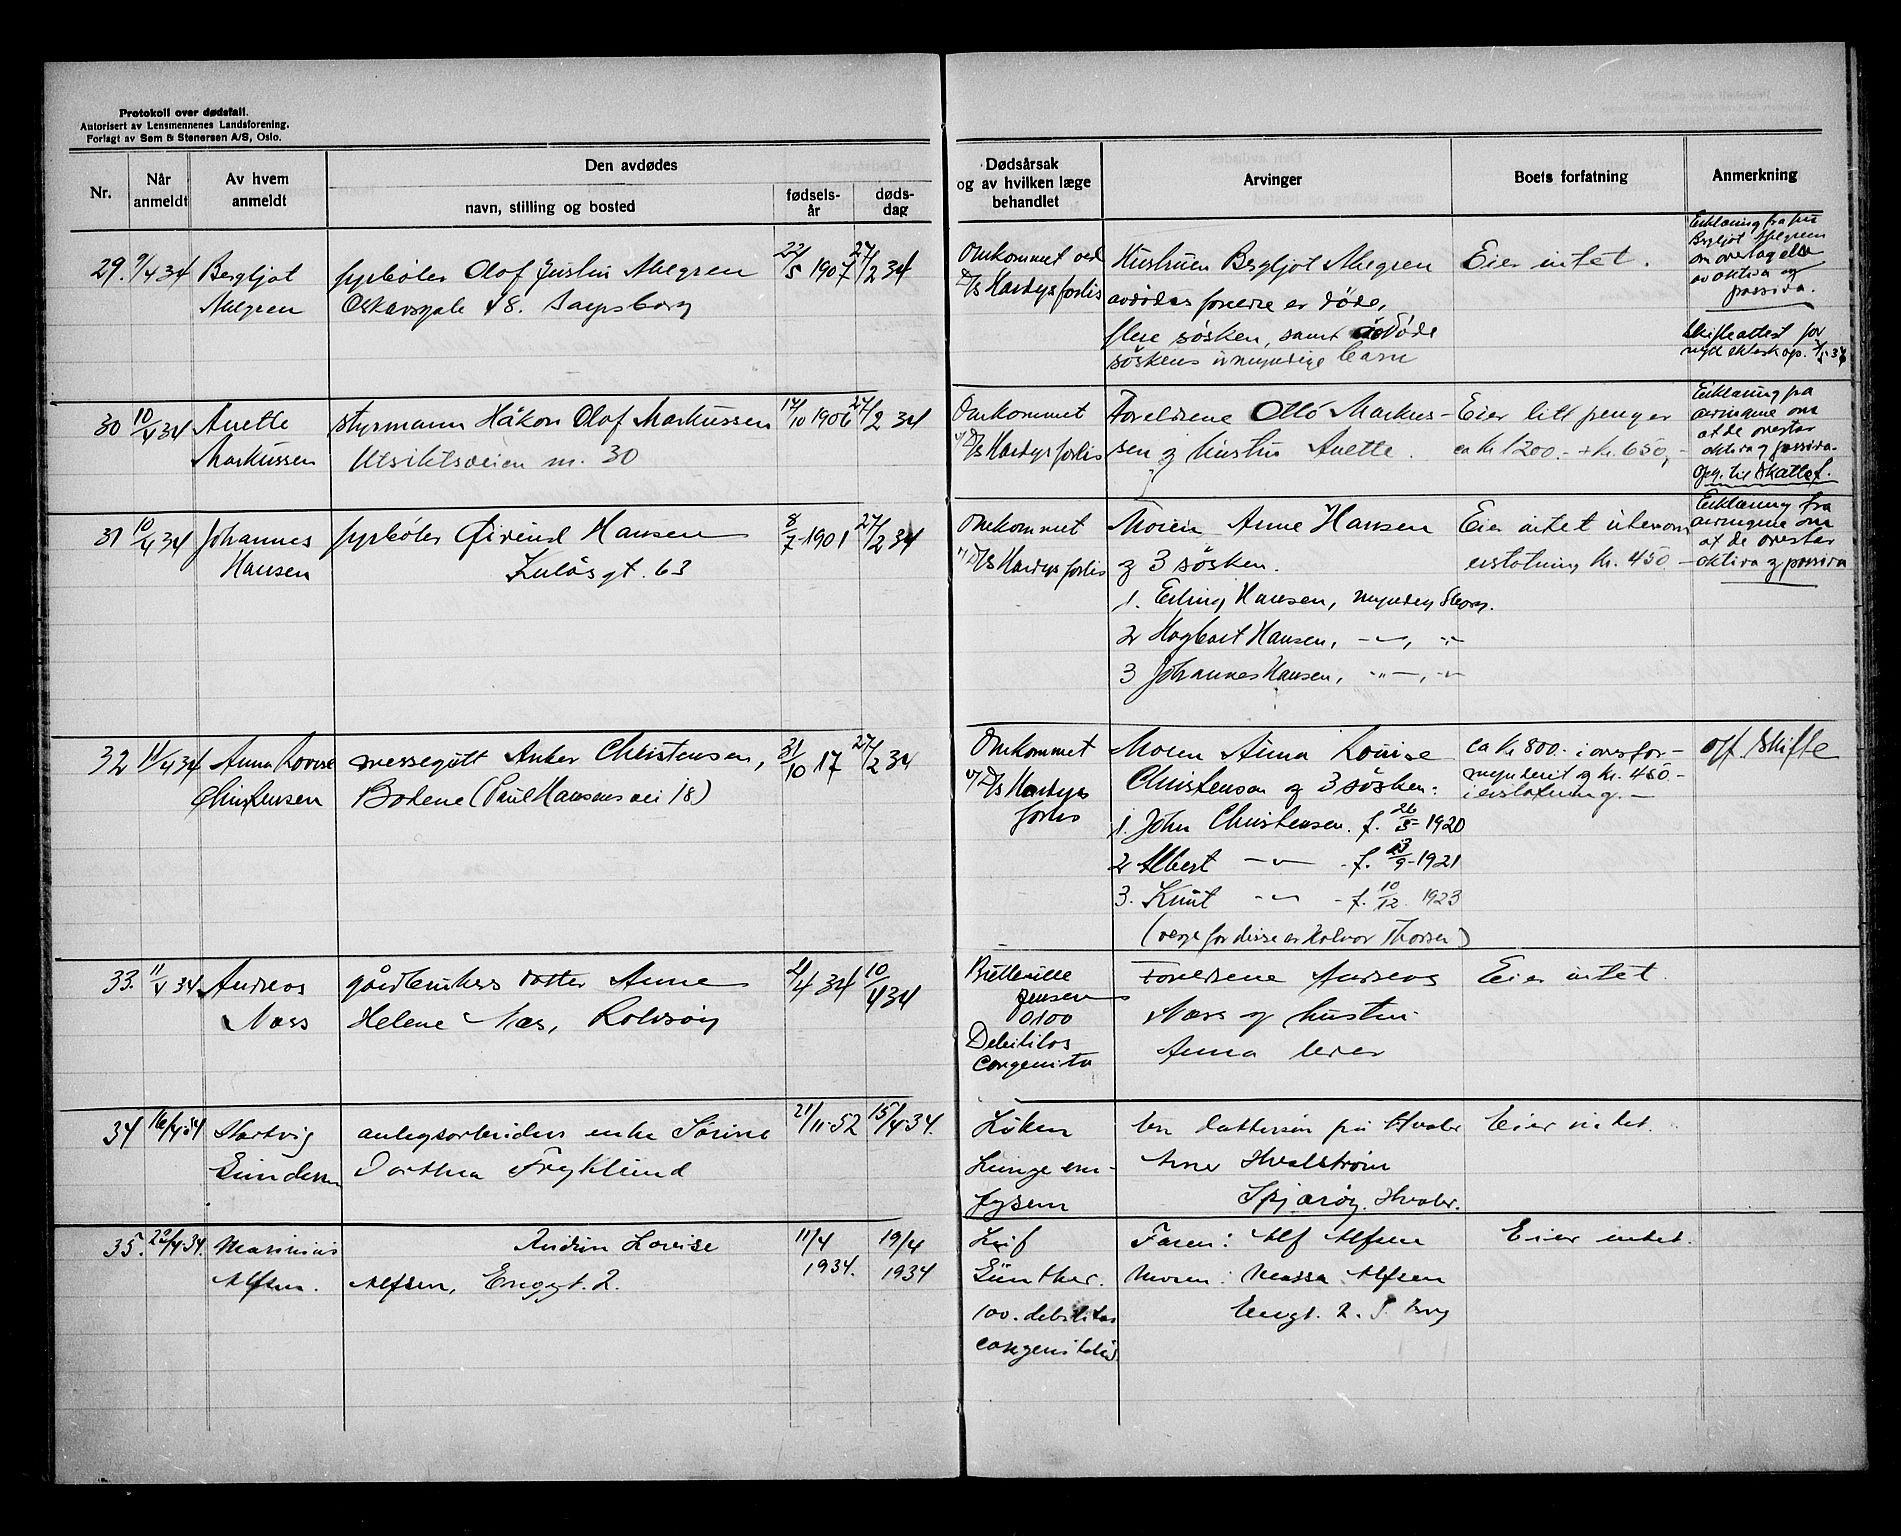 Protokoll over dødsfall.
Autorisert av Lensmennenes Landsforening.
Forlagt av Sem & Stenersen A/S, Oslo.
Nr.
Når anmeldt
Av hvem anmeldt
Den avdødes
navn, stilling og bosted
fødsels-år
døds-dag
Dødsårsak og av hvilken læge behandlet
Arvinger
Boets forfatning
Anmerkning
29. 9/4 34 Bergljot fyrbøter Olof Justin Ahlgren 22/5 1907 27/2 34
Ahlgren Oskarsgate 48. Sarpsborg
Omkommet ved Hustruen Bergljot Ahlgren Eier intet.
D/S Hardys forlis avdødes foreldre er døde,
flere søsken, samt døde
søskens umyndige barn
Erklæring fra fru
Bergljot Ahlgren
om overtagelse
av aktiva og
passiva.
Skifteattest for
nytt ekteskap.
30 10/4 34 Anette styrmann Håkon Olof Markussen 17/10 1906 27/2 34
Markussen Utsiktsveien nr. 30
Omkommet Foreldrene Otto Markus- Eier litt penger
v/ D/S Hardys forlis sen og hustru Anette. ca kr 1200.- + kr. 650,-
Erklæring fra
arvingene om
at de overtar
aktiva og passiva.
Opg. til Skattef.
31 10/4 34 Johannes fyrbøter Øivind Hansen 8/7 1901 27/2 34
Hansen Kulåsgt. 63
Omkommet Moren Anne Hansen Eier intet utenom
v/ D/S Hardys forlis og 3 søsken. erstatning kr. 450.-
1. Erling Hansen, myndig Sborg.
2 Hagbart Hansen, -"-, "
3 Johannes Hansen, -"-, "
Erklæring fra
arvingene om
at de overtar
aktiva og passiva
32 11/4 34 Anna Lovise messegutt Anker Christensen, 31/10 17 27/2 34
Christensen Bodene (Paul Hansens vei 18)
Omkommet Moren Anna Lovise ca kr 800.- i overfor- off. skifte
v/ D/S Hardys Christensen og 3 søsken: mynderiet og kr. 450-
forlis i erstatning.-
1. John Christensen. f. 26/5 1920
2 Albert -"- f. 23/9-1921
3. Knut -"- f. 10/12. 1923
(verge for disse er Halvor Thorsen)
33. 11/4 34 Andreas gårdbrukers datter Anne 4/4 34 10/4 34
Næss Helene Næs, Rolvsøy
Jensen Foreldrene Andreas Eier intet.
0100 Næss og hustru
Debilitas Anna
congenita
34 16/4 34 Hartvig anlegsarbeiders enke Sørine 21/11-52 15/4-34.
Gundersen Dorthea Fryklund
Løken en dattersøn på Hvaler Eier intet.
Lunge em- Arne Hvalstrøm
fysem Spjærøy, Hvaler.
35. 22/4 34. Marinius Andrin Lovise 11/4 1934. 19/4 1934
Alfsen. Alfsen, Enggt. 2.
Leif Faren: Alf Alfsen Eier intet.
Günther. Moren: Massa Alfsen
100. debilitas Enggt. 2. S. borg
congenitalis